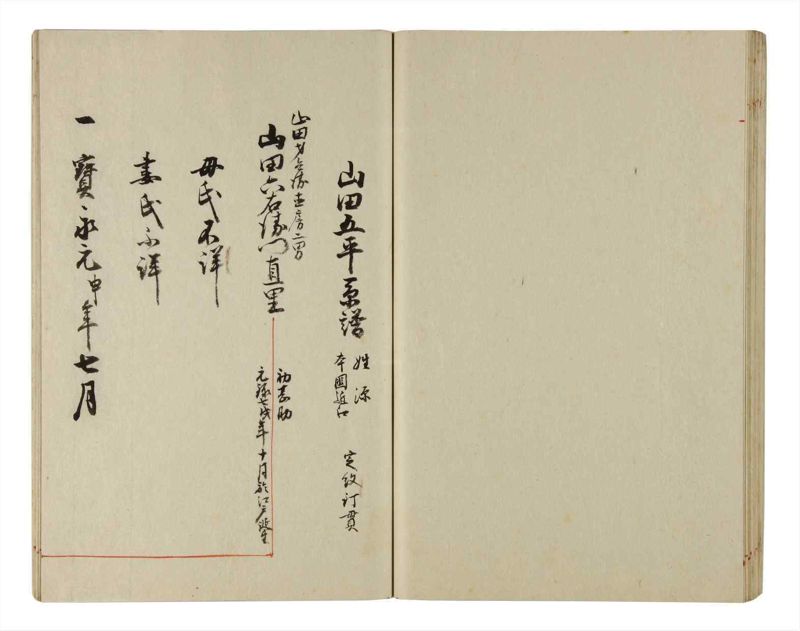 山田五平系譜
姓源
本國近江
定紋釘貫
山田 直房二男
山田六右衛門直里
初 助
元禄七戌年十月於江戸 生
母氏不詳
妻氏不詳
一寳永元申年七月